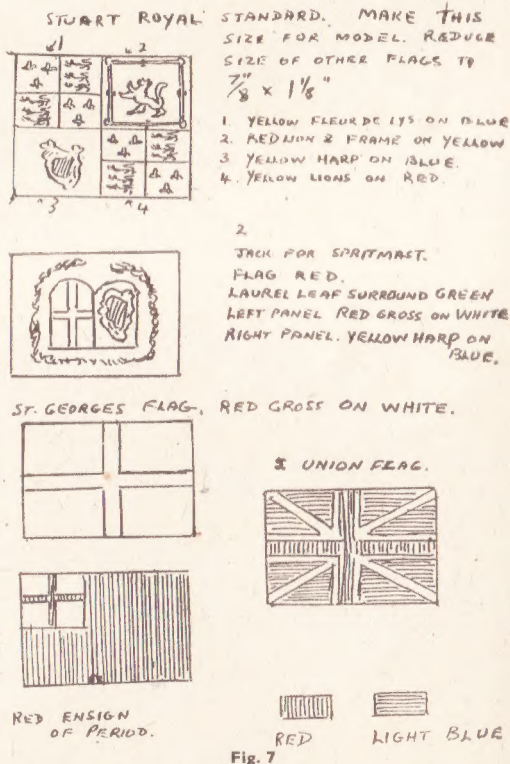 STUART ROYAL STANDARD. MAKE THIS
SIZE FOR MODEL. REDUCE
SIZE OF OTHER FLAGS TO
7/8" × 1 1/8"
1 2
1. YELLOW FLEUR DE LYS ON BLUE
2. RED LION & FRAME ON YELLOW
3 YELLOW HARP ON BLUE.
4. YELLOW LIONS ON RED.
3 4
2
JACK FOR SPRITMAST.
FLAG RED.
LAUREL LEAF SURROUND GREEN
LEFT PANEL RED CROSS ON WHITE
RIGHT PANEL. YELLOW HARP ON
BLUE.
ST. GEORGES FLAG, RED CROSS ON WHITE.
UNION FLAG.
RED ENSIGN
OF PERIOD.
RED LIGHT BLUE
Fig. 7